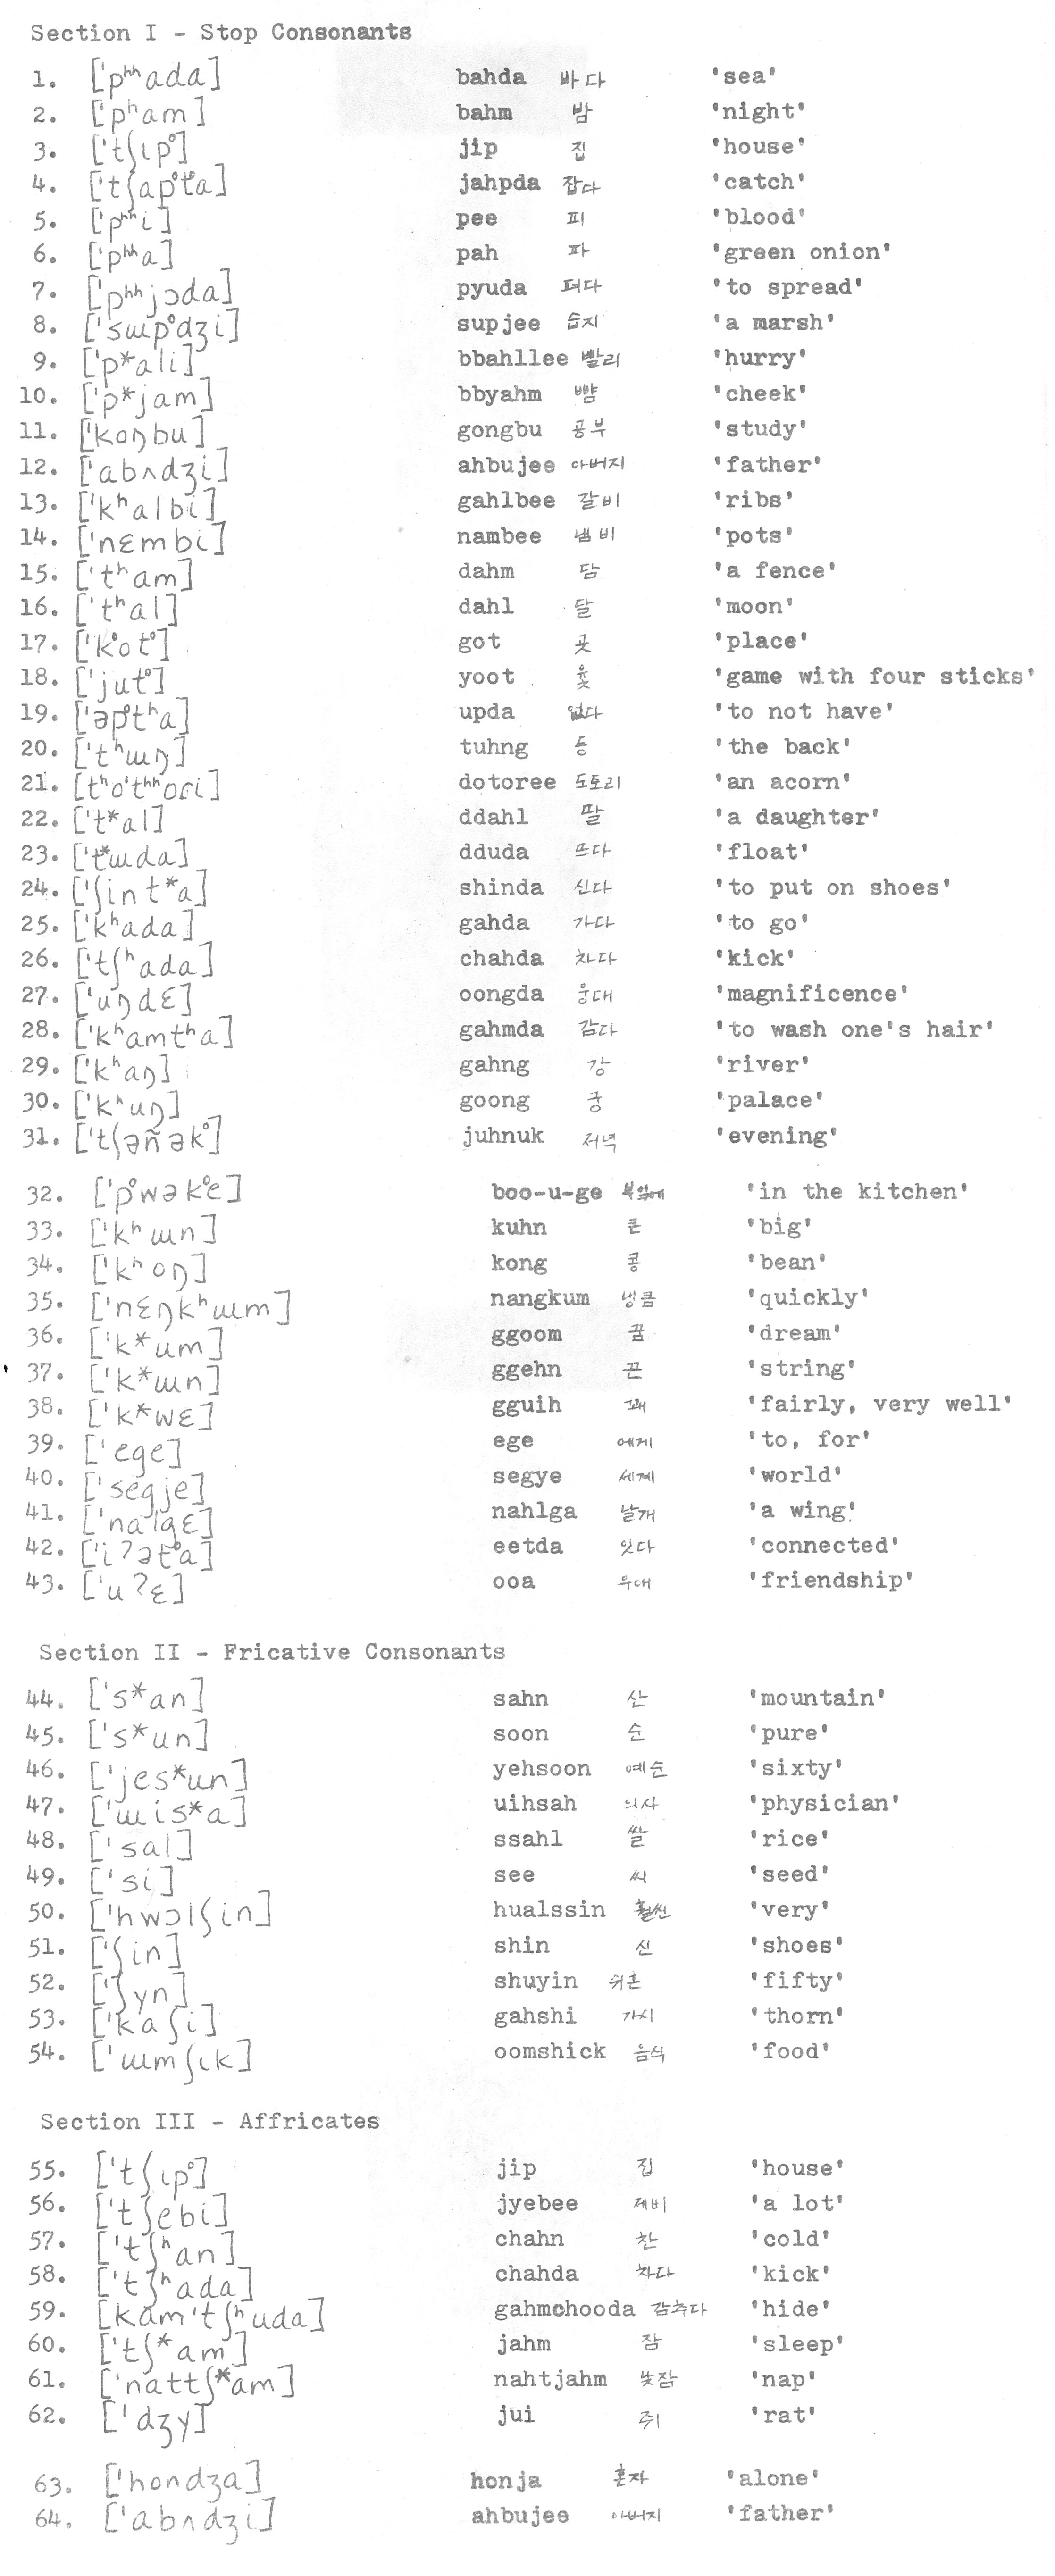 Section I - Stop Consonants
1. ['pʰʰada] bahda 바다 'sea'
2. ['pʰam] bahm 밤 'night'
3. ['tʃɩp°] jip 집 'house'
4. ['tʃap°t°a] jahpda 잡다 'catch'
5. ['pʰʰi] pee 피 'blood'
6. ['pʰʰa] pah 파 'green onion'
7. ['pʰʰjɔda] pyuda 펴다 'to spread'
8. ['sɯp°dʒi] supjee 습지 'a marsh'
9. ['p*ali] bbahllee 빨리 'hurry'
10. ['p*jam] bbyahm 뺨 'cheek'
11. ['koŋbu] gongbu 공부 'study'
12. ['abʌdʒi] ahbujee 아버지 'father'
13. ['kʰalbi] gahlbee 갈비 'ribs'
14. ['nɛmbi] nambee 냄비 'pots'
15. ['tʰam] dahm 담 'a fence'
16. ['tʰal] dahl 달 'moon'
17. ['k°ot°] got 곳 'place'
18. ['jut°] yoot 윷 'game with four sticks'
19. ['əp°tʰa] upda 없다 'to not have'
20. ['tʰɯŋ] tuhng 등 'the back'
21. [tʰo'tʰʰoɾi] dotoree 도토리 'an acorn'
22. ['t*al] ddahl 딸 'a daughter'
23. ['t*ɯda] dduda 뜨다 'float'
24. ['ʃint*a] shinda 신다 'to put on shoes'
25. ['kʰada] gahda 가다 'to go'
26. ['tʃʰada] chahda 차다 'kick'
27. ['uŋdɛ] oongda 웅대 'magnificence'
28. ['kʰamtʰa] gahmda 감다 'to wash one's hair'
29. ['kʰaŋ] gahng 강 'river'
30. ['kʰuŋ] goong 궁 'palace'
31. ['tʃəñək°] juhnuk 저녁 'evening'
32. ['p°wək°e] boo-u-ge 부엌에 'in the kitchen'
33. ['kʰɯn] kuhn 큰 'big'
34. ['kʰoŋ] kong 콩 'bean'
35. ['nɛŋkʰɯm] nangkum 냉큼 'quickly'
36. ['k*um] ggoom 꿈 'dream'
37. ['k*ɯn] ggehn 끈 'string'
38. ['k*wɛ] gguih 꽤 'fairly, very well'
39. ['ege] ege 에게 'to, for'
40. ['segje] segye 세계 'world'
41. ['nalgɛ] nahlga 날개 'a wing'
42. ['iʔət°a] eetda 잇다 'connected'
43. ['uʔɛ] ooa 우애 'friendship'
Section II - Fricative Consonants
44. ['s*an] sahn 산 'mountain'
45. ['s*un] soon 순 'pure'
46. ['jes*un] yehsoon 예순 'sixty'
47. ['ɯis*a] uihsah 의사 'physician'
48. ['sal] ssahl 쌀 'rice'
49. ['si] see 씨 'seed'
50. ['hwɔlʃin] hualssin 훨씬 'very'
51. ['ʃin] shin 신 'shoes'
52. ['ʃyn] shuyin 쉬흔 'fifty'
53. ['kaʃi] gahshi 가시 'thorn'
54. ['ɯmʃɩk] oomshick 음식 'food'
Section III - Affricates
55. ['tʃɩp°] jip 집 'house'
56. ['tʃebi] jyebee 제비 'a lot'
57. ['tʃʰan] chahn 찬 'cold'
58. ['tʃʰada] chahda 차다 'kick'
59. [kam'tʃʰuda] gahmchooda 감추다 'hide'
60. ['tʃ*am] jahm 잠 'sleep'
61. ['nattʃ*am] nahtjahm 낮잠 'nap'
62. ['dʒy] jui 쥐 'rat'
63. ['hondʒa] honja 혼자 'alone'
64. ['abʌdʒi] ahbujee 아버지 'father'